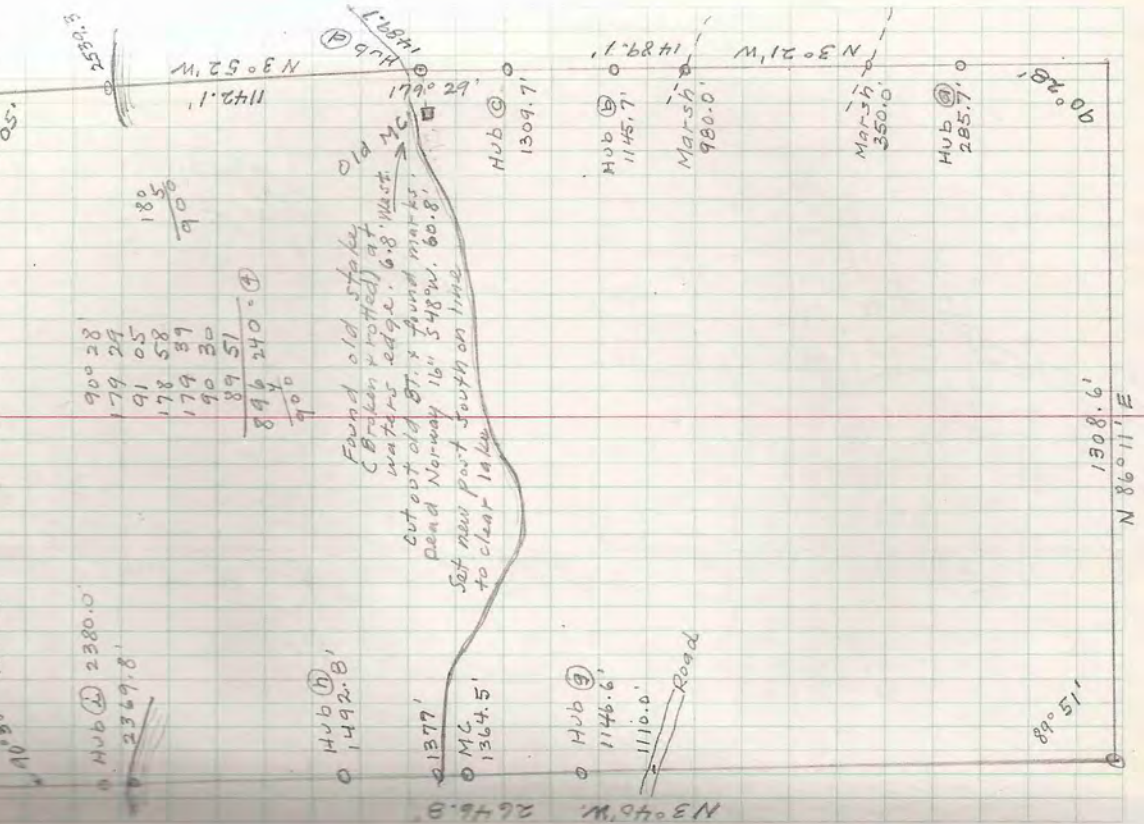 05'
2539.3
N 3° 52' W
1142.1'
Hub ⓓ
1489.1'
179° 29'
Hub ⓒ
1309.7'
Hub ⓑ
1145.7'
1489.1'
Marsh
980.0'
N 3° 21' W
Marsh
350.0'
Hub ⓐ
285.7'
90° 28'
180
5
900
90° 28'
179 29
91 05
178 58
179 39
90 30
89 51
896 240 = ④
4 0
900
Old MC
Found old stake
(Broken + rotted) at
waters edge. 6.8' West.
Cut out old BT. + found marks.
Dead Norway 16" S48°W. 60.8'
Set new post South on line
to clear lake
Hub ⓘ 2380.0'
2369.8'
Hub ⓗ
1492.8'
1377'
MC
1364.5'
Hub ⓖ
1146.6'
1110.0'
Road
N 3° 40' W. 2646.8'
89° 51'
1308.6'
N 86° 11' E